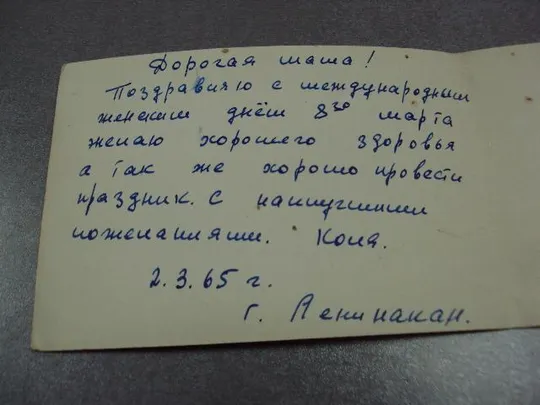 Дорогая маша!
Поздравляю с международным
женским днём 8го марта
желаю хорошего здоровья
а так же хорошо провести
праздник. С наилучшими
пожеланиями. Коля.
2.3.65 г.
г. Ленинакан.